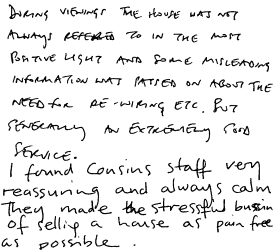 DURING VIEWINGS THE HOUSE WAS NOT
ALWAYS REFERED TO IN THE MOST
POSITIVE LIGHT AND SOME MISLEADING
INFORMATION WAS PASSED ON ABOUT THE
NEED FOR RE-WIRING ETC. BUT
GENERALLY AN EXTREMELY GOOD
SERVICE.
I found Cousins staff very
reassuring and always calm
They made the stressful busin
of sellig a house as pain free
as possible.